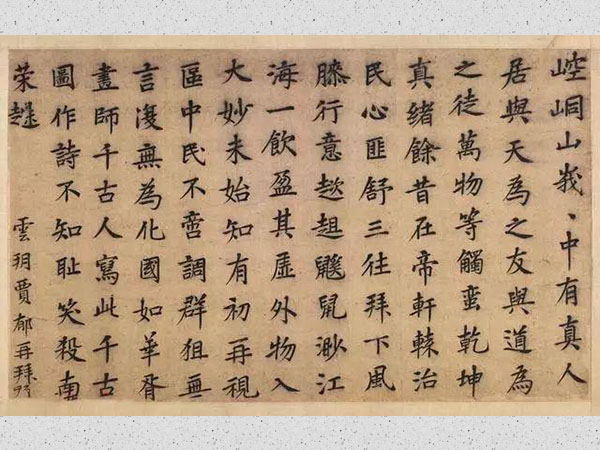 崆峒山峩、中有真人
居與天為之友與道為
之徒萬物等觸蛮乾坤
真緒餘昔在帝軒轅治
民心匪舒三往拜下風
膝行意趑趄鼷鼠渺江
海一飲盈其虛外物入
大妙未始知有初再視
區中民不啻調群狙無
言復無為化國如華胥
畫師千古人寫此千古
圖作詩不知恥笑殺南
荣趎
雲玥賈郁再拜